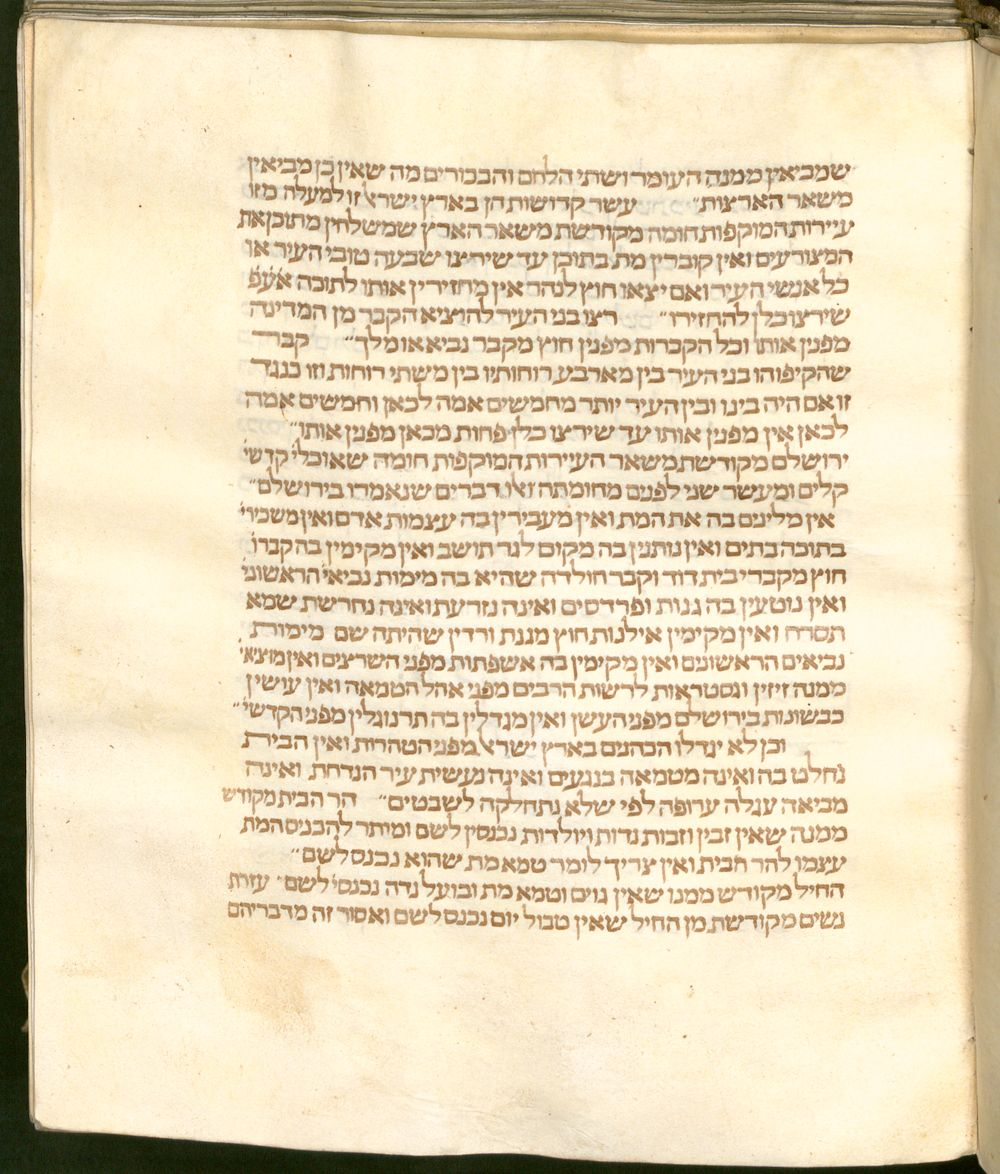 שמביאין ממנה העומר ושתי הלחם והבכורים מה שאין כן מביאין
משאר הארצות״ עשר קדושות הן בארץ ישרא׳ זו למעלה מזו
עיירות המוקפות חומה מקודשת משאר הארץ שמשלחין מתוכן את
המצורעים ואין קוברין מת בתוכן עד שירצו שבעה טובי העיר או
כל אנשי העיר ואם יצאו חוץ לנהר אין מחזירין אותו לתוכה אע׳פ
שירצו כלן להחזירו״ רצו בני העיר להוציא הקבר מן המדינה
מפנין אותו וכל הקברות מפנין חוץ מקבר נביא או מלך״ קבר
שהקיפוהו בני העיר בין מארבע רוחותיו בין משתי רוחות וזו כנגד
זו אם היה בינו ובין העיר יותר מחמשים אמה לכאן וחמשים אמה
לכאן אין מפנין אותו עד שירצו כלן פחות מכאן מפנין אותו״
ירושלם מקודשת משאר העיירות המוקפות חומה שאוכלי׳ קדשי׳
קלים ומעשר שני לפנים מחומתה ואו דברים שנאמרו בירושלם״
אין מלינים בה את המת ואין מעבירין בה עצמות אדם ואין משכירי׳
בתוכה בתים ואין נותנין בה מקום לגר תושב ואין מקימין בה קברו׳
חוץ מקברי בית דוד וקבר חולדה שהיא בה מימות נביאי׳ הראשוני׳
ואין נוטעין בה גנות ופרדסים ואינה נזרעת ואינה נחרשת שמא
תסרח ואין מקימין אילנות חוץ מגנת ורדין שהיתה שם מימות
נביאים הראשונים ואין מקימין בה אשפתות מפני השרצים ואין מוציאי׳
ממנה זיזין וגסטראות לרשות הרבים מפני אהל הטמאה ואין עושין
כבשונות בירושלם מפני העשן ואין מגדלין בה תרנוגלין מפני הקדשי׳״
וכן לא יגדלו הכהנים בארץ ישרא׳ מפני הטהרות ואין הבית
נחלט בה ואינה מטמאה בנגעים ואינה נעשית עיר הנדחת ואינה
מביאה עגלה ערופה לפי שלא נתחלקה לשבטים״ הר הבית מקודש
ממנה שאין זבין וזבות נדות ויולדות נכנסין לשם ומותר להכניס המת
עצמו להר הבית ואין צריך לומר טמא מת שהוא נכנס לשם״
החיל מקודש ממנו שאין גוים וטמא מת ובועל נדה נכנסי׳ לשם״ עזרת
נשים מקודשת מן החיל שאין טבול יום נכנס לשם ואסור זה מדבריהם